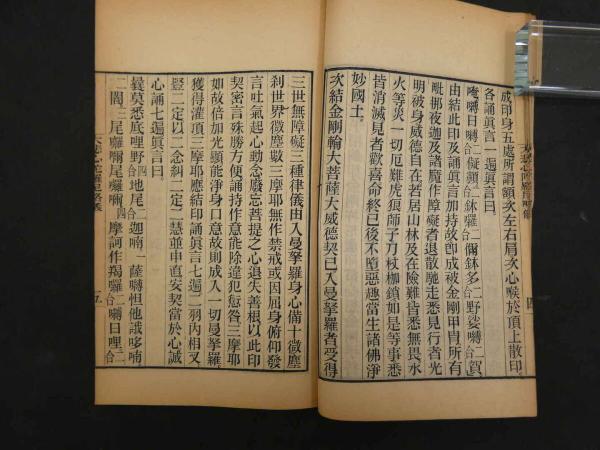 成印身五處所謂額次左右肩次心喉於頂上散印
各誦眞言一遍眞言曰
唵嚩日囉二合儗
由結此印及誦眞言加持故卽成被金剛甲冑所有
毗那夜迦及諸魔作障礙者退散馳走悉見行者光
明被身威德自在若居山林及在險難皆悉無畏水
火等災一切厄難虎狼師子刀杖枷鎖如是等事悉
皆消滅見者歡喜命終已後不墮惡趣當生諸佛淨
妙國土
次結金剛輪大菩薩大威德契已入曼拏羅者受得
三世無障礙三種律儀由入曼拏羅身心備十微塵
剎世界微塵數三摩耶無作禁戒或因屈身俯仰發
言吐氣起心動念廢忘菩提之心退失善根以此印
契密言殊勝方便誦持作意能除違犯愆咎三摩耶
如故倍加光顯能淨身口意故則成入一切曼拏羅
獲得灌頂三摩耶應結印誦眞言七遍二羽內相叉
豎二定以二念糾二定二慧並申直安契當於心誠
心誦七遍眞言曰
曩莫悉底哩野合二地尾二迦喃一薩嚩怛他誐哆喃
二闇三尾囉爾尾囉爾四摩訶作羯囉二合嚩日哩二合
四
五